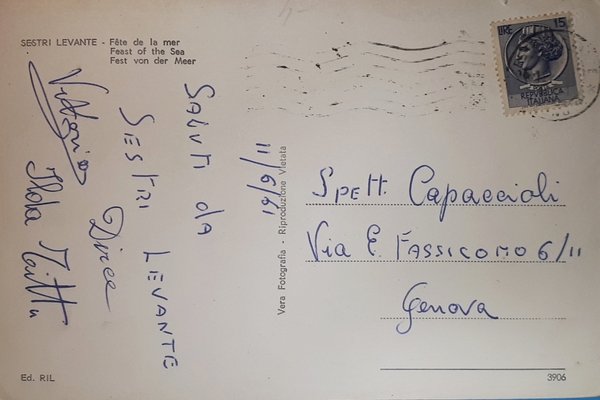 SESTRI LEVANTE - Fête de la mer
Feast of the Sea
Fest von der Meer
LIRE 15
REPVBBLICA
ITALIANA
SALUTI DA
SESTRI LEVANTE
11/6/61
Vittorio
Dirce
Ilda
Vera Fotografia - Riproduzione Vietata
Spett. Capaccioli
Via E. FASSICOMO 6/11
Genova
Ed. RIL
3906